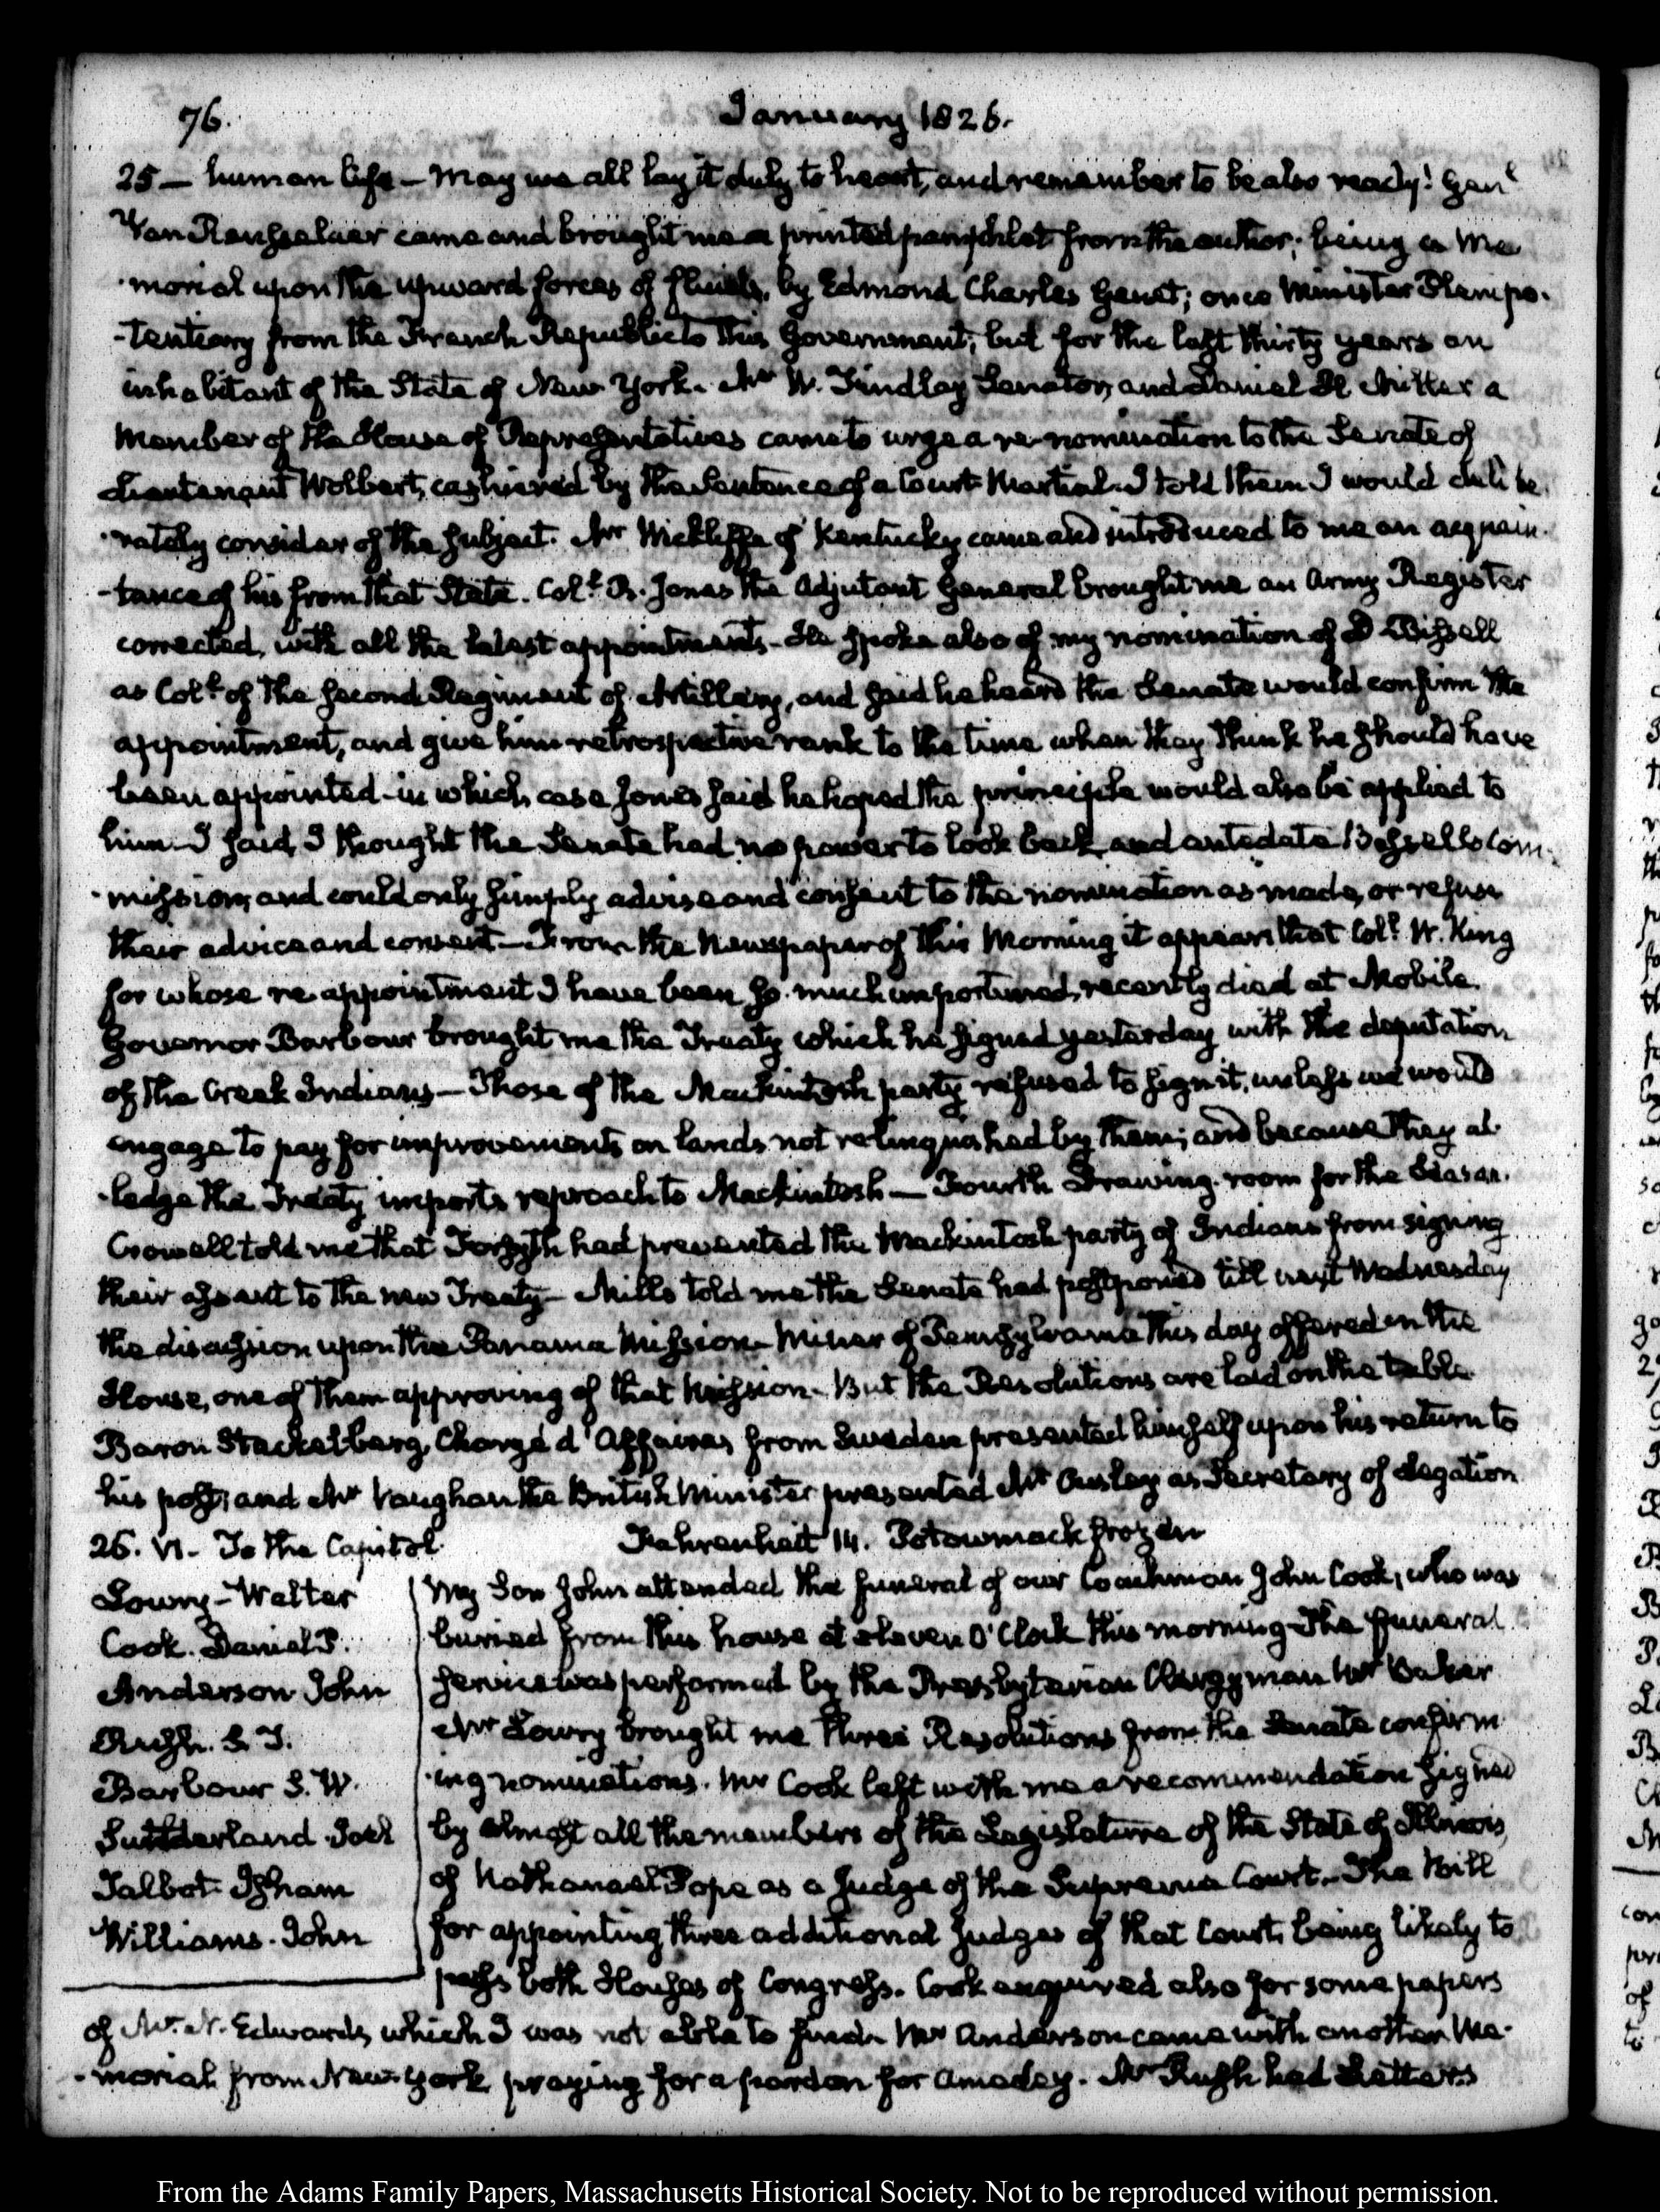 76. January 1826.
25 — human life — May we all lay it duly to heart, and remember to be also ready! Genl
Van Rensselaer came and brought me a printed pamphlet from the author; being a Me
-morial upon the upward forces of fluids, by Edmond Charles Genet; once Minister Plenipo-
-tentiary from the French Republic to this Government; but for the last thirty years an
inhabitant of the State of New York. Mr W. Findlay Senator, and Daniel H Miller a
Member of the House of Representatives came to urge a re-nomination to the Senate of
Lieutenant Wolbert, cashiered by the Sentence of a Court Martial. I told them I would delibe-
-rately consider of the subject. Mr Wickliffe of Kentucky came and introduced to me an acquain-
-tance of his from that State. Coll. R. Jones the Adjutant General brought me an Army Register
corrected, with all the latest appointments. He spoke also of my nomination of D Bissell
as Coll. of the second Regiment of Artillery, and said he heard the Senate would confirm the
appointment, and give him retrospective rank to the time when they think he should have
been appointed - in which case Jones said he hoped the principle would also be applied to
him. I said, I thought the Senate had no power to look back and antedate Bissells Com-
-mission, and could only simply advise and consent to the nomination as made, or refuse
their advice and consent — From the Newspaper of this Morning it appears that Coll. W. King
for whose re-appointment I have been so much importuned, recently died at Mobile.
Governor Barbour brought me the Treaty which he signed yesterday with the deputation
of the Creek Indians — Those of the Mackintosh party refused to sign it, unless we would
engage to pay for improvements on lands not relinquished by them; and because they al-
-ledge the Treaty imports reproach to Mackintosh — Fourth Drawing-room for the Season.
Crowell told me that Forsyth had prevented the Mackintosh party of Indians from signing
their assent to the new Treaty — Mills told me the Senate had postponed till next Wednesday
the discussion upon the Panama Mission. Miner of Pennsylvania this day offered in the
House, one of them approving of that Mission. But the Resolutions are laid on the table.
Baron Stackelberg, Chargé d'Affaires from Sweden presented himself upon his return to
his post; and Mr Vaughan the British Minister presented Mr Ousley as Secretary of Legation
26. VI. To the Capitol. Fahrenheit 14. Potowmack frozen
Lowry - Walter
Cook. Daniel P.
Anderson John
Rush. S. T.
Barbour S. W.
Sutherland Joel
Talbot. Isham
Williams. John
My Son John attended the funeral of our Coachman John Cook, who was
buried from this house at eleven O'Clock this morning. The funeral
service was performed by the Presbyterian Clergyman Mr Baker
Mr Lowry brought me three Resolutions from the Senate confirm
-ing nominations. Mr Cook left with me a recommendation signed
by almost all the members of the Legislature of the State of Illinois,
of Nathanael Pope as a Judge of the Supreme Court. The Bill
for appointing three additional Judges of that Court, being likely to
pass both Houses of Congress. Cook enquired also for some papers
of Mr. N. Edwards, which I was not able to find. Mr Anderson came with another Me-
-morial from New-York praying for a pardon for Amadey. Mr Rush had Letters
From the Adams Family Papers, Massachusetts Historical Society. Not to be reproduced without permission.